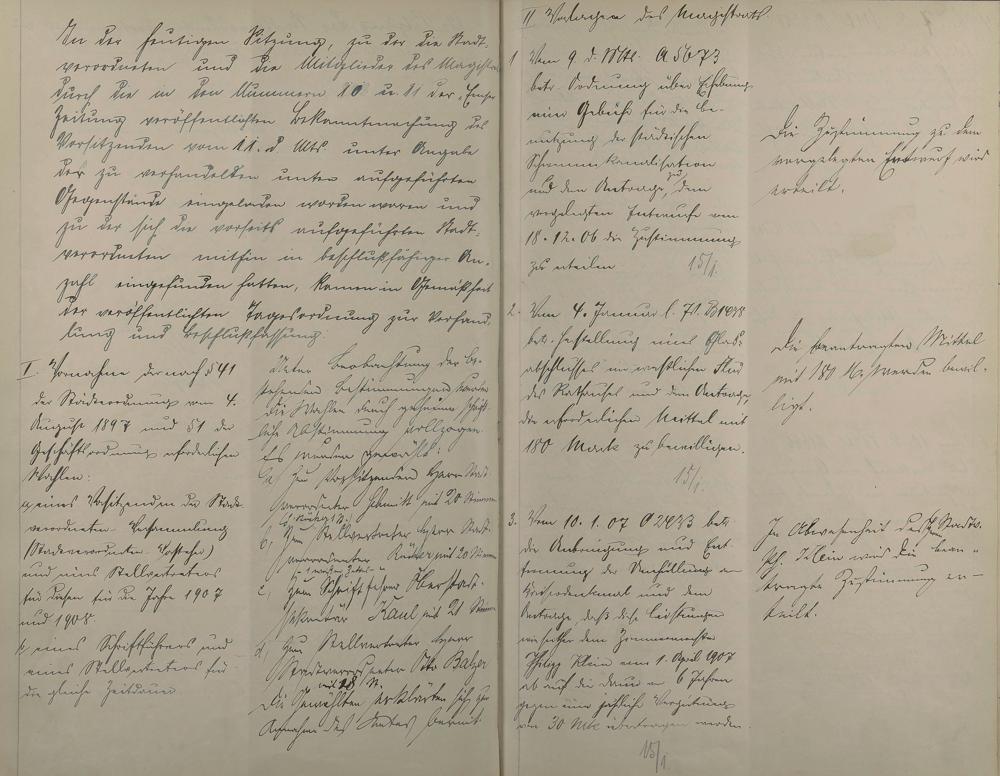 In der heutigen Sitzung, zu der die Stadt-
verordneten und die Mitglieder des Magistrats
durch die in den Nummern 10 u. 11 der „Emser
Zeitung veröffentlichten Bekanntmachung des
Vorsitzenden vom 11. d Mts. unter Angabe
der zu verhandelnden unten aufgeführten
Gegenstände eingeladen worden waren und
zu der sich die vorseits aufgeführten Stadt-
verordneten mithin in beschlußfähiger An-
zahl eingefunden hatten, kamen in Gemäßheit
der veröffentlichten Tagesordnung zur Verhand-
lung und Beschlußfassung.
I. Vornahme der nach § 41
der Städteordnung vom 4.
August 1897 und § 1 der
Geschäftsordnung erforderlichen
Wahlen:
a, eines Vorsitzenden der Stadt-
verordneten-Versammlung
(Stadtverordneten-Vorsteher)
und eines Stellvertreters
für diesen für die Jahre 1907
und 1908
b, eines Schriftführers und
eines Stellvertreters für
die gleiche Zeitdauer.
Unter Beobachtung der be-
stehenden Bestimmungen wurden
die Wahlen durch geheime schrift-
liche Abstimmung vollzogen.
Es wurden gewählt:
a, zum Vorsitzenden Herr Stadt-
verordneter mit 20 Stimmen
b, zum Stellvertreter Herr Stadt-
verordneter mit 20 Stimmen
c, zum Schriftführer Oberstadt-
sekretär Kaul mit 21 Stimmen
d, zum Stellvertreter Herr
Stadtverordneter Otto Balzer
mit 18 St.
Die Gewählten erklärten sich zur
Annahme des Amtes bereit.
II Vorlagen des Magistrats
1 Vom 9 d. Mts. A 5673
betr. Ordnung über Erhebung
einer Gebühr für die Be-
nutzung der städtischen
Schwemmkanalisation
und dem Antrage, dem
vorgelegten Entwurfe vom
18.12.06 die Zustimmung
zu erteilen 15/1.
Die Zustimmung zu dem
vorgelegten Entwurf wird
erteilt.
2. Vom 4. Januar l. Js.
betr. Herstellung eines Glas-
abschlusses im westlichen Flur
des Rathauses und dem Antrage
die erforderlichen Mittel mit
180 Mark zu bewilligen.
15/1.
Die beantragten Mittel
mit 180 M. werden bewil-
ligt.
3. Vom 10.1.07 betr.
die Anbringung und Ent-
fernung der Umhüllung am
Kriegerdenkmal und dem
Antrage, daß diese Leistungen
dem Zimmermeister
Philipp Klein vom 1. April 1907
ab auf die Dauer von 6 Jahren
gegen eine jährliche Vergütung
von 30 Mk übertragen werden.
15/1
In Abwesenheit des Stadtv.
Ph. Klein wird die bean-
tragte Zustimmung er-
teilt.